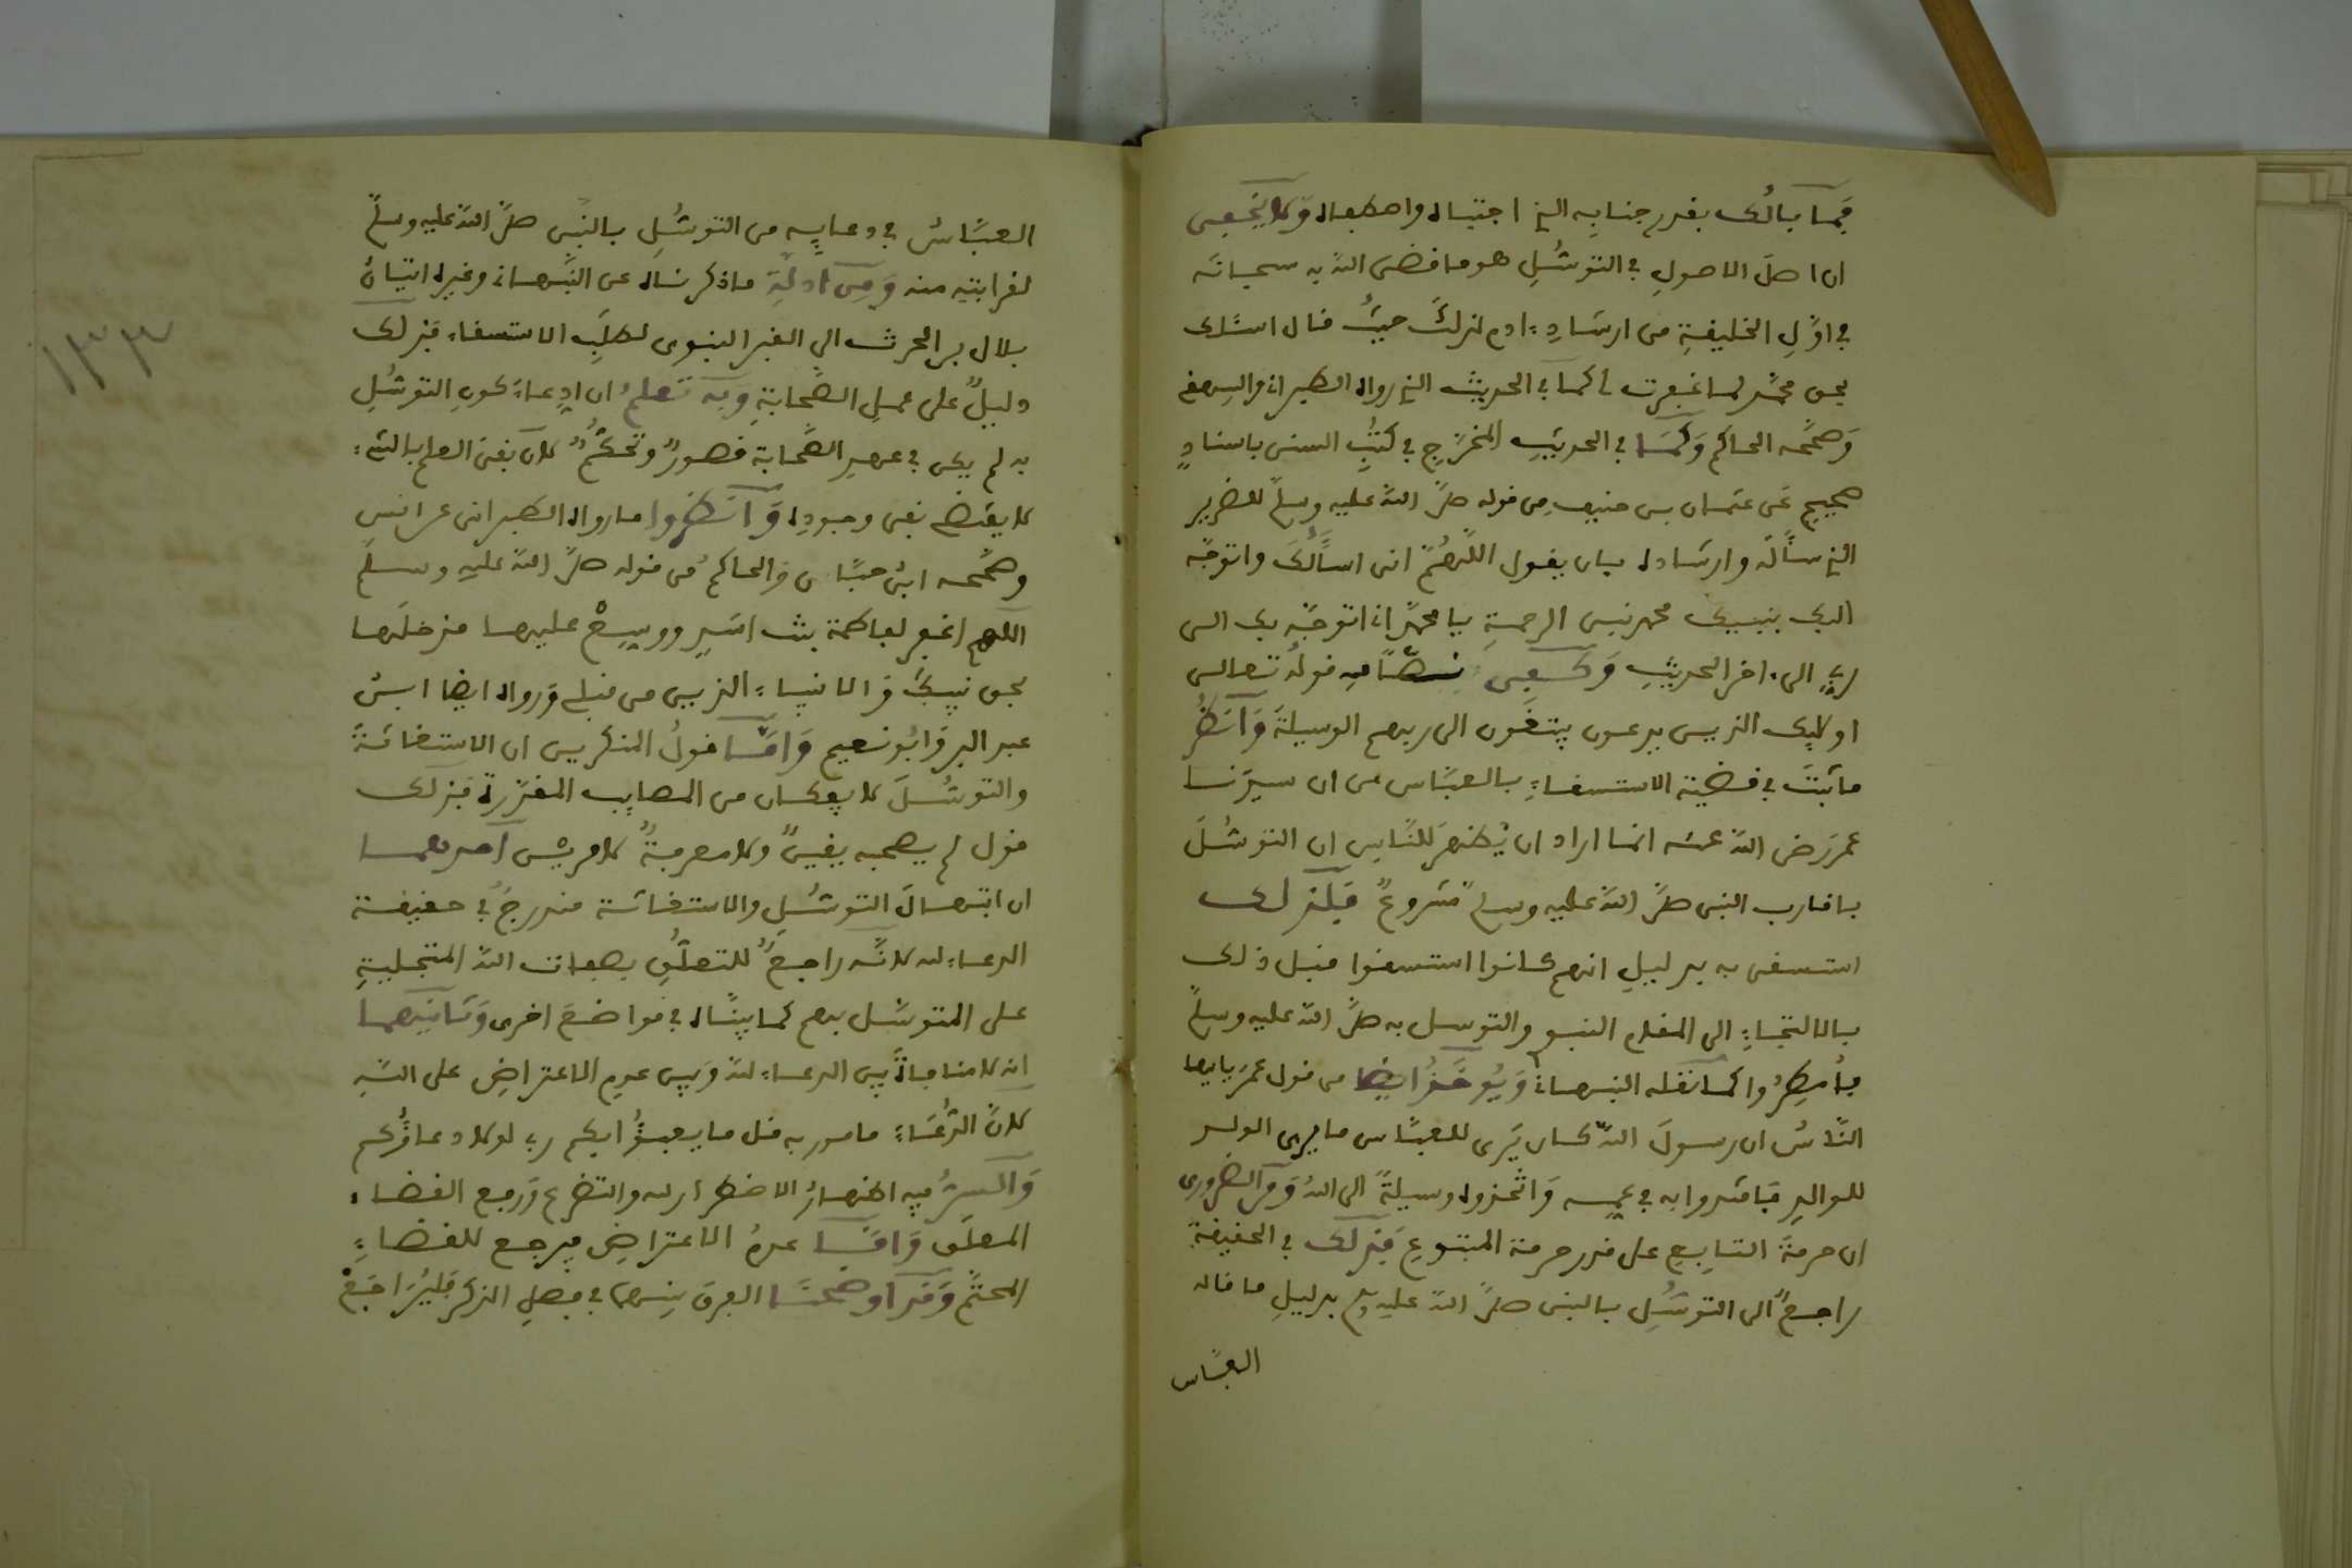 فما بالك بقدر جنابه الذي اجتباه واصطفاه ولا يخفى
ان اصل الاصول في التوسل هو ما قضى الله به سبحانه
في اول الخليقة من ارشاد ادم لذلك حيث قال اسئلك
بحق محمد لما غفرت لي كما في الحديث الذي رواه الطبراني والبيهقي
وصححه الحاكم وكما في الحديث المخرج في كتب السنن باسناد
صحيح عن عثمان بن حنيف من قوله صلى الله عليه وسلم للضرير
الذي سأله وارشاده بان يقول اللهم اني اسألك واتوجه
اليك بنبيك محمد نبي الرحمة يا محمد اني اتوجه بك الى
ربي الى اخر الحديث وكفى نصا فيه قوله تعالى
اولئك الذين يدعون يبتغون الى ربهم الوسيلة وانظر
ما ثبت في قضية الاستسقاء بالعباس من ان سيدنا
عمر رضي الله عنه انما اراد ان يظهر للناس ان التوسل
باقارب النبي صلى الله عليه وسلم مشروع فلذلك
استسقى به بدليل انهم كانوا استسقوا قبل ذلك
بالالتجاء الى المقام النبوي والتوسل به صلى الله عليه وسلم
فأمطروا كما نقله النبهاني ويؤخذ ايضا من قول عمر يايها
الناس ان رسول الله كان يرى للعباس ما يرى الولد
للوالد فاقتدوا به في عمه واتخذوه وسيلة الى الله ومن الضروري
ان حرمة التابع على قدر حرمة المتبوع فذلك في الحقيقة
راجع الى التوسل بالنبي صلى الله عليه وسلم بدليل ما قاله
العباس
العباس في دعايه من التوسل بالنبي صلى الله عليه وسلم
لقرابته منه ومن ادلة ما ذكرناه عن النبهاني وغيره اتيان
بلال بن الحرث الي القبر النبوي لطلب الاستسقاء فذلك
دليل على عمل الصحابة وبه تعلم ان ادعاء كون التوسل
به لم يكن في عهد الصحابة قصور وتحكم لان نفي العلم بالشيء
لا يقتضي نفي وجوده وانظروا ما رواه الطبراني عن انس
وصححه ابن حبان والحاكم من قوله صلى الله عليه وسلم
اللهم اغفر لفاطمة بنت اسد ووسع عليها مدخلها
بحق نبيك والانبياء الذين من قبلي ورواه ايضا ابن
عبد البر وابو نعيم واما قول المنكرين ان الاستغاثة
والتوسل لا يفكان من المصايب المقدرة فذلك
قول لم يصحبه يقين ولا معرفة لامرين احدهما
ان ابتهال التوسل والاستغاثة مندرج في حقيقة
الدعاء لله لانه راجع للتعلق بصفات الله المتجلية
على المتوسل بهم كما بيناه في مواضع اخرى وثانيهما
انه لا منافاة بين الدعاء لله وبين عدم الاعتراض على الله
لان الدعاء مامور به قل ما يعبؤا بكم ربي لولا دعاؤكم
والسر فيه اظهار الاضطرار لله والتضرع ورفع القضاء
المعلق واما عدم الاعتراض فيرجع للقضاء
المحتم وقد اوضحنا الفرق بينهما في فصل الذكر فليراجع
١٣٣